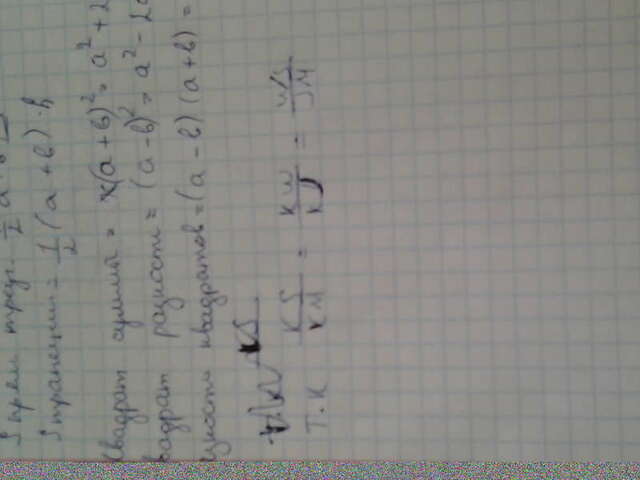 S прям. треуг. = 1/2 a · b
S трапеции = 1/2 (a + b) · h
Квадрат суммы = (a + b)² = a² + 2
вадрат разности = (a - b)² = a² - 2a
зность квадратов = (a - b) (a + b) =
KS
Т.К KS/KM = KW/KJ = WS/JM